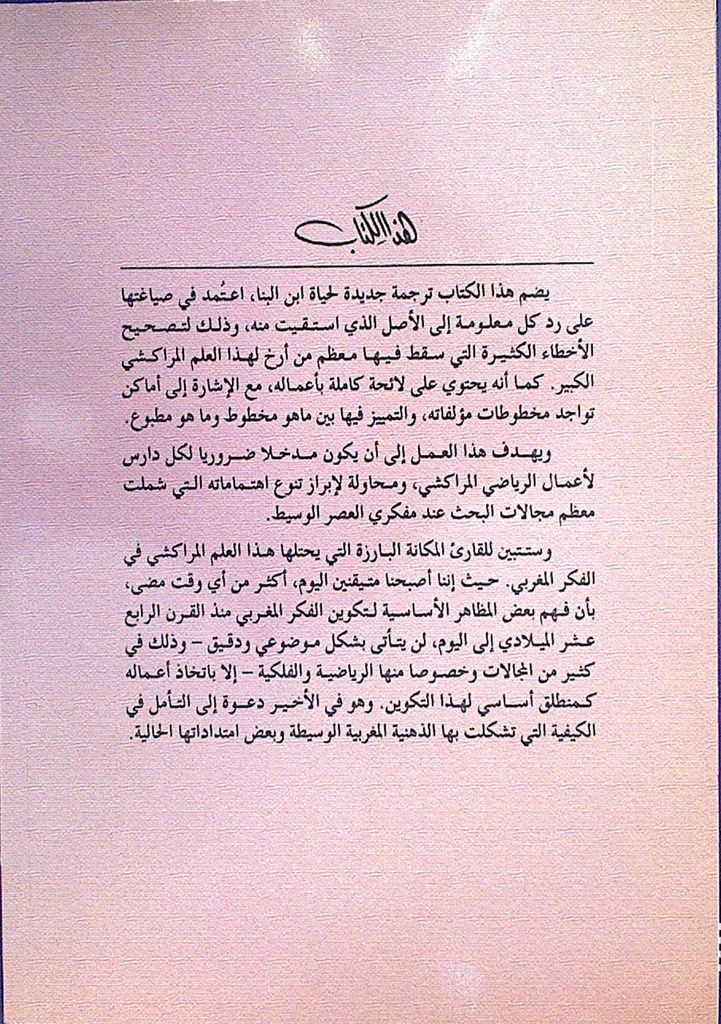 هذا الكتاب
يضم هذا الكتاب ترجمة جديدة لحياة ابن البنا، اعتُمد في صياغتها
على رد كل معلومة إلى الأصل الذي استقيت منه، وذلك لتصحيح
الأخطاء الكثيرة التي سقط فيها معظم من أرخ لهذا العلم المراكشي
الكبير. كما أنه يحتوي على لائحة كاملة بأعماله، مع الإشارة إلى أماكن
تواجد مخطوطات مؤلفاته، والتمييز فيها بين ماهو مخطوط وما هو مطبوع.
ويهدف هذا العمل إلى أن يكون مدخلا ضروريا لكل دارس
لأعمال الرياضي المراكشي، ومحاولة لإبراز تنوع اهتماماته التي شملت
معظم مجالات البحث عند مفكري العصر الوسيط.
وستتبين للقارئ المكانة البارزة التي يحتلها هذا العلم المراكشي في
الفكر المغربي. حيث إننا أصبحنا متيقنين اليوم، أكثر من أي وقت مضى،
بأن فهم بعض المظاهر الأساسية لتكوين الفكر المغربي منذ القرن الرابع
عشر الميلادي إلى اليوم، لن يتأتى بشكل موضوعي ودقيق – وذلك في
كثير من المجالات وخصوصا منها الرياضية والفلكية – إلا باتخاذ أعماله
كمنطلق أساسي لهذا التكوين. وهو في الأخير دعوة إلى التأمل في
الكيفية التي تشكلت بها الذهنية المغربية الوسيطة وبعض امتداداتها الحالية.